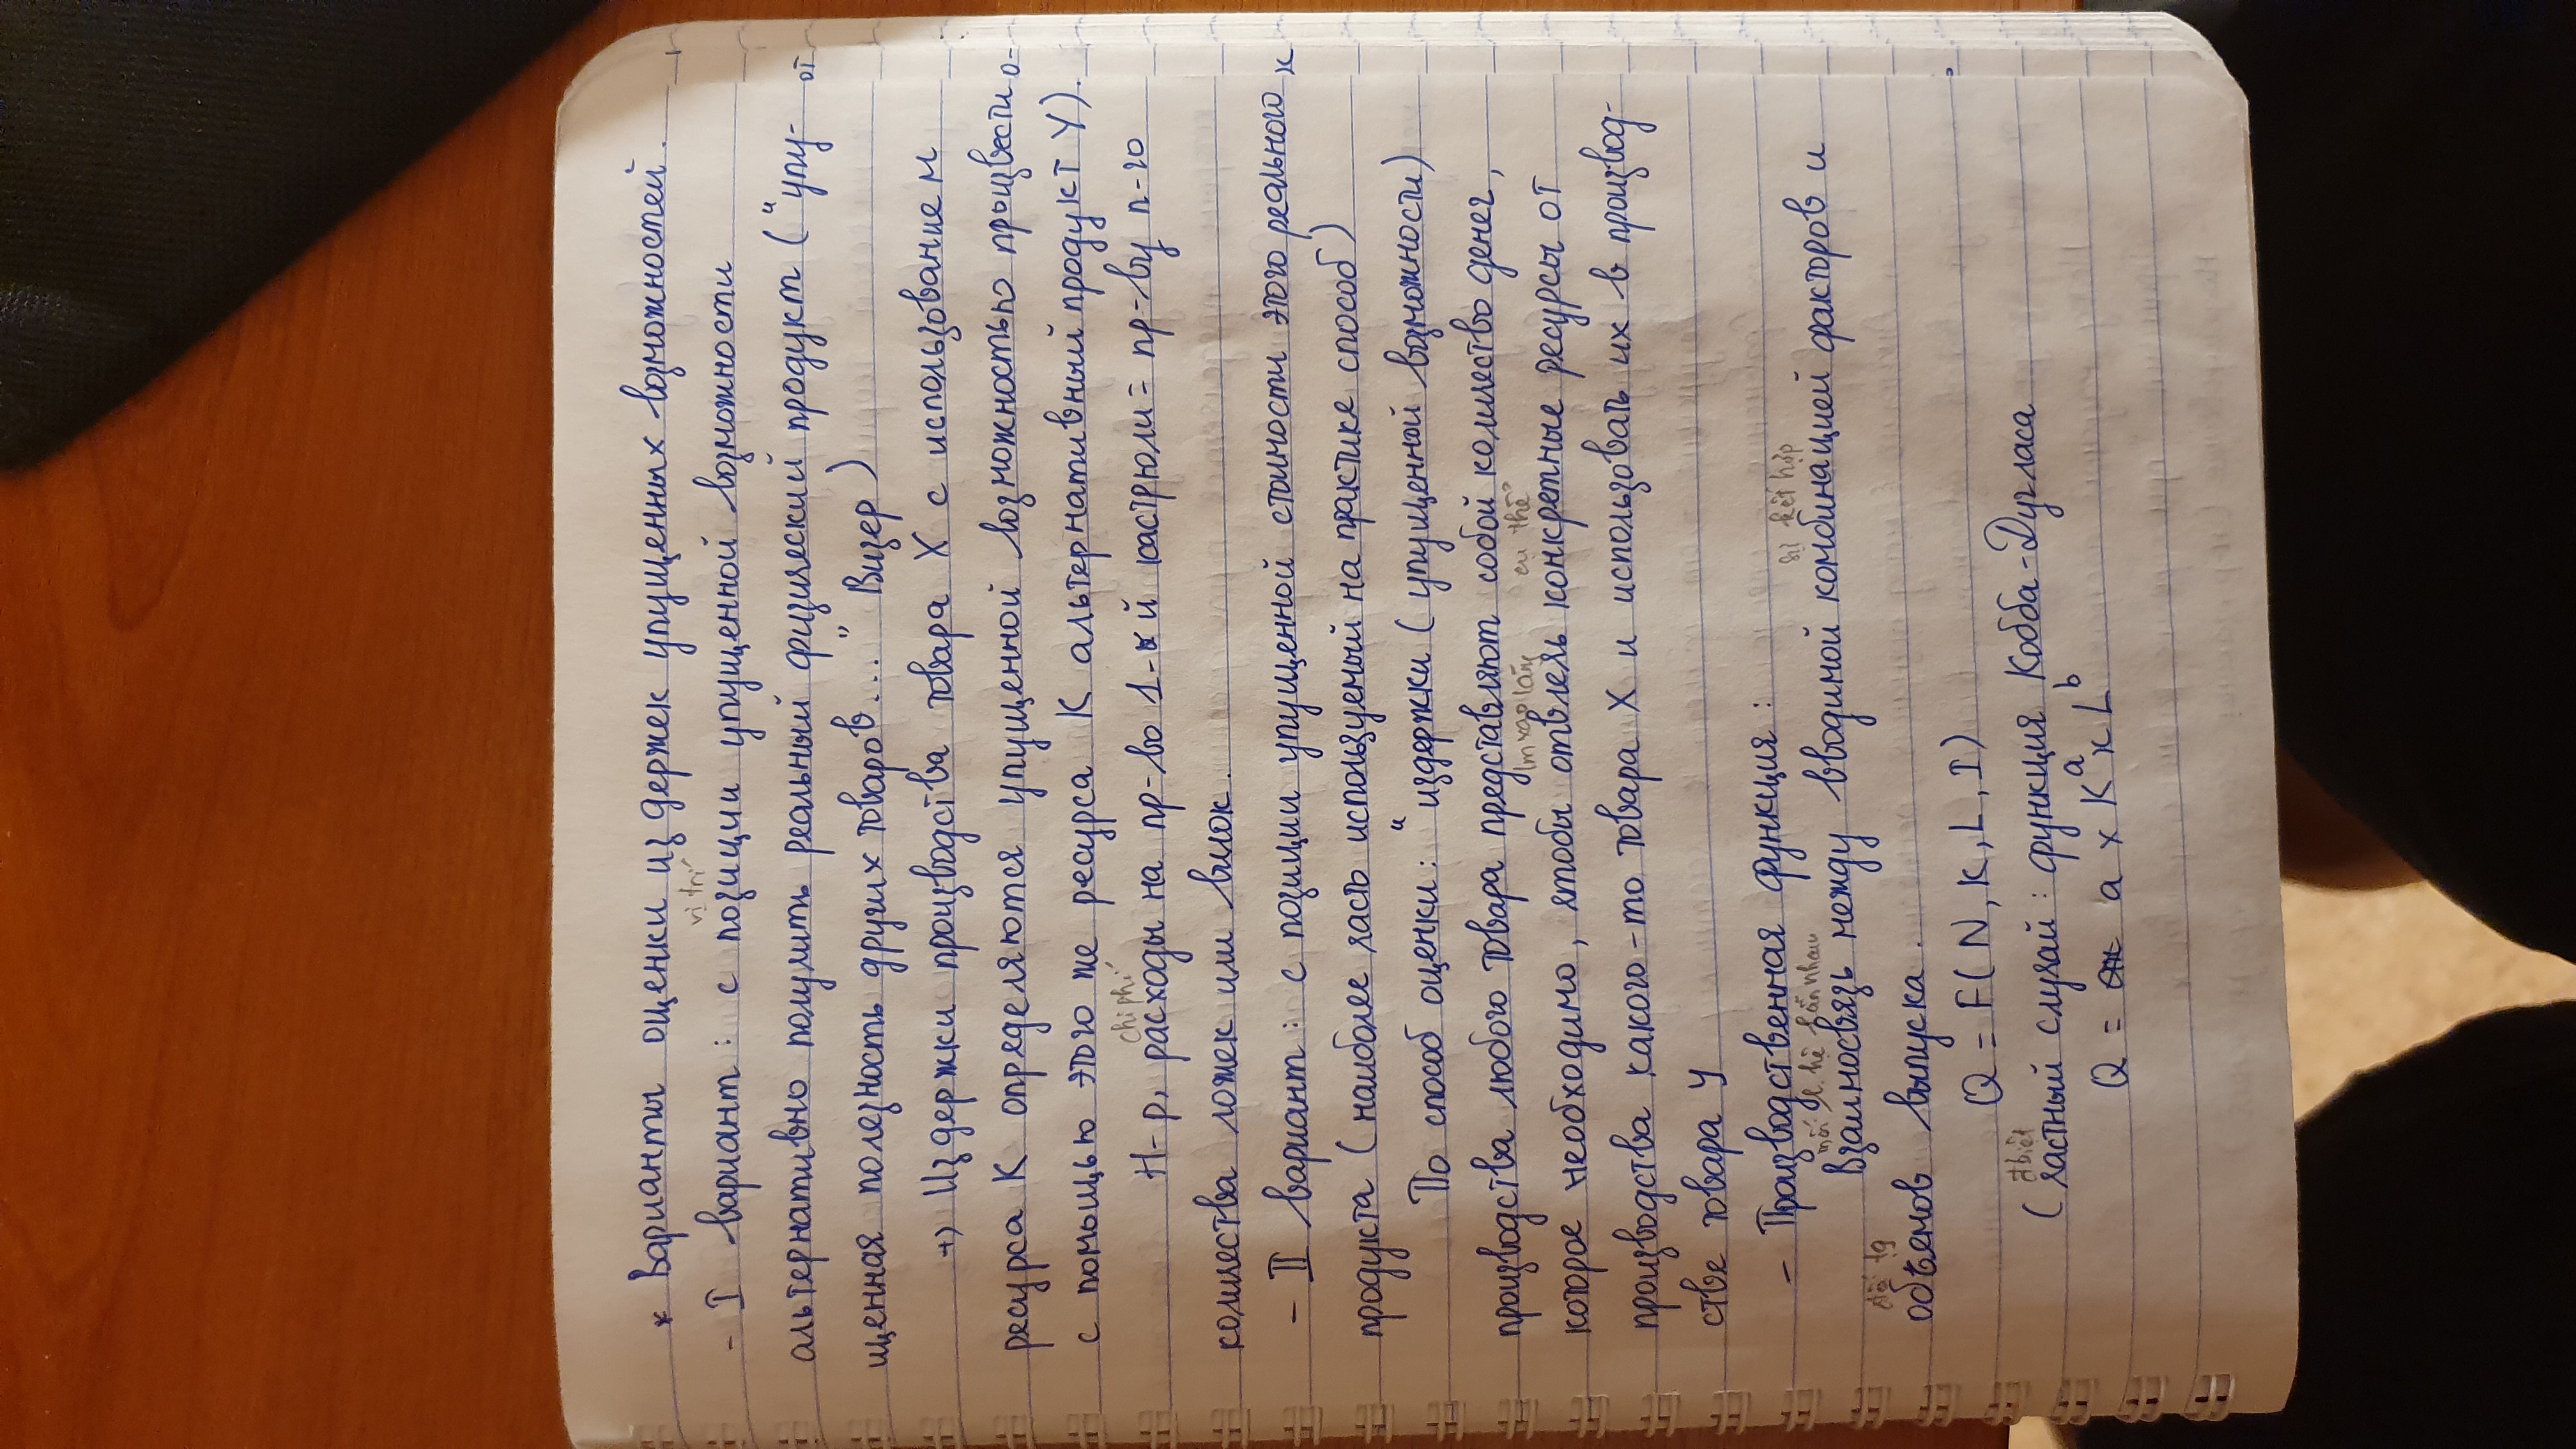 * Варианты оценки издержек упущенных возможностей.
vị trí
- I вариант: с позиции упущенной возможности
альтернативно получить реальный физический продукт ("упу-
щенная полезность других товаров..." Визер)
+) Издержки производства товара X с использованием
ресурса К определяются упущенной возможностью произвести
с помощью этого же ресурса К альтернативный продукт Y).
chi phí
Н-р, расходы на пр-во 1-й кастрюли = пр-ву n-го
количества ложек или вилок.
- II вариант: с позиции упущенной стоимости этого реального
продукта (наиболее часто используемый на практике способ)
По способ оценки: "издержки (упущенной возможности)
производства любого товара представляют собой количество денег,
cụ thể
которое необходимо, чтобы отвлечь конкретные ресурсы от
производства какого-то товара X и использовать их в производ-
стве товара У
- Производственная функция:
mối l. hệ lẫn nhau sự kết hợp
Взаимосвязь между вводимой комбинацией факторов и
объёмов выпуска.
Q = F(N, K, L, I)
đ biệt
(частный случай: функция Кобба-Дугласа
Q = a x K^a x L^b